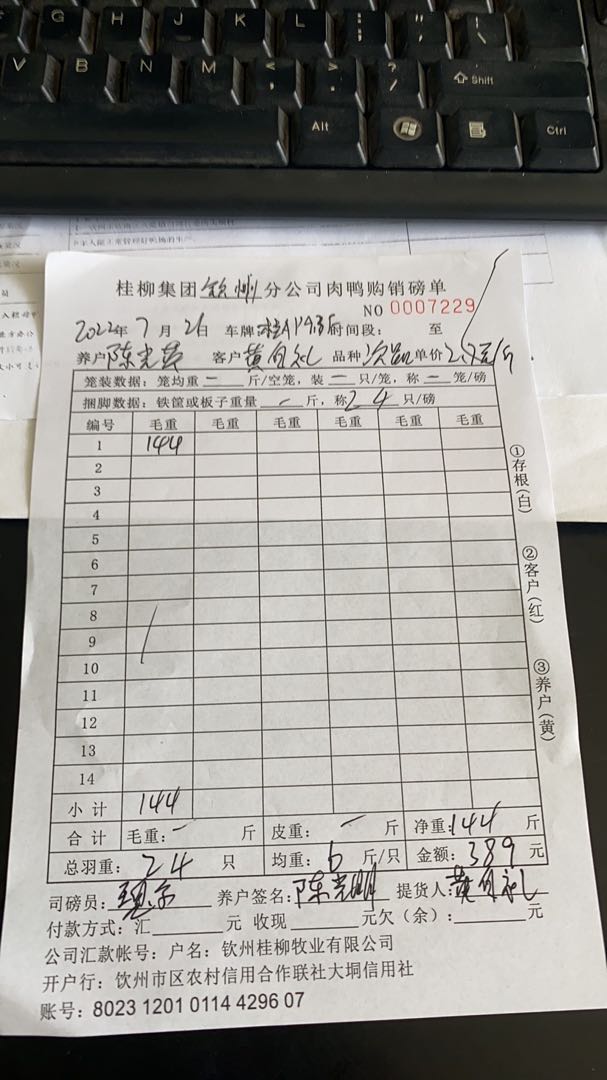 Alt
Shift
Ctrl
桂柳集团钦州分公司肉鸭购销磅单
NO 0007229
2022年7月26日 车牌 时间段： 至
养户 陈光 客户 黄 品种 次品 单价 2.7元/斤
笼装数据：笼均重 一 斤/空笼，装 一 只/笼，称 一 笼/磅
捆脚数据：铁筐或板子重量 一 斤，称 24 只/磅
编号 毛重 毛重 毛重 毛重 毛重 毛重
1 144
2
3
4
5
6
7
8
9
10
11
12
13
14
小计 144
合计 毛重：一 斤 皮重：一 斤 净重：144 斤
总羽重：24 只 均重：6 斤/只 金额：389 元
司磅员： 养户签名：陈光明 提货人：黄
付款方式：汇 元 收现 元欠（余）： 元
公司汇款帐号：户名：钦州桂柳牧业有限公司
开户行：钦州市区农村信用合作联社大垌信用社
账号：8023 1201 0114 4296 07
①存根(白)
②客户(红)
③养户(黄)